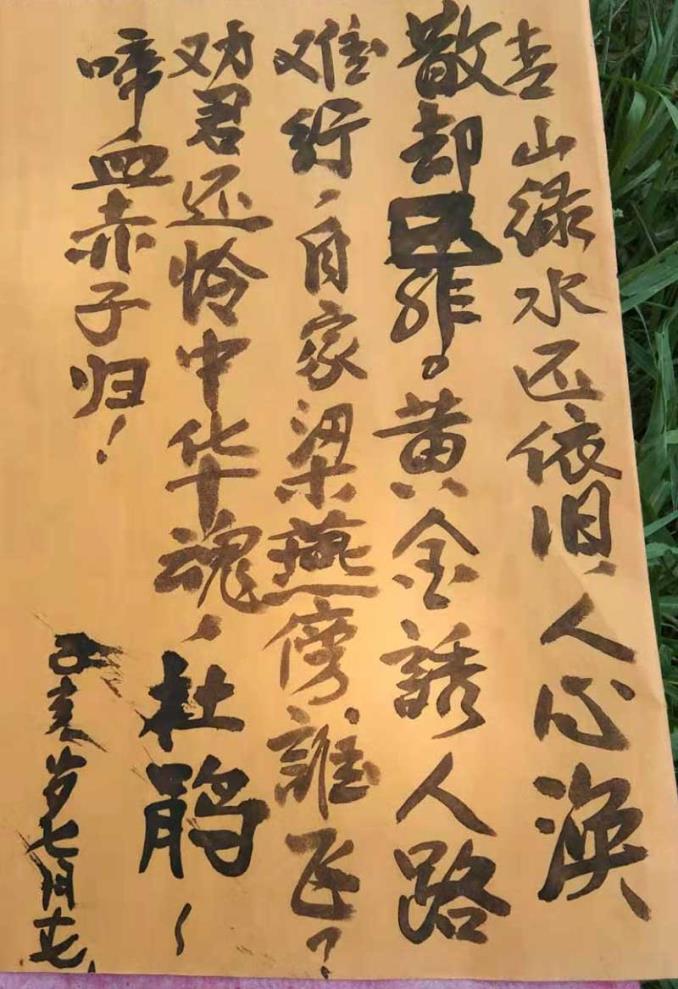 山绿水还依旧，人心涣
散却非。黄金誘人路
难行，自家梁燕傍誰飞？
劝君还怜中华魂，杜鹃～
啼血赤子归！
己亥岁七月